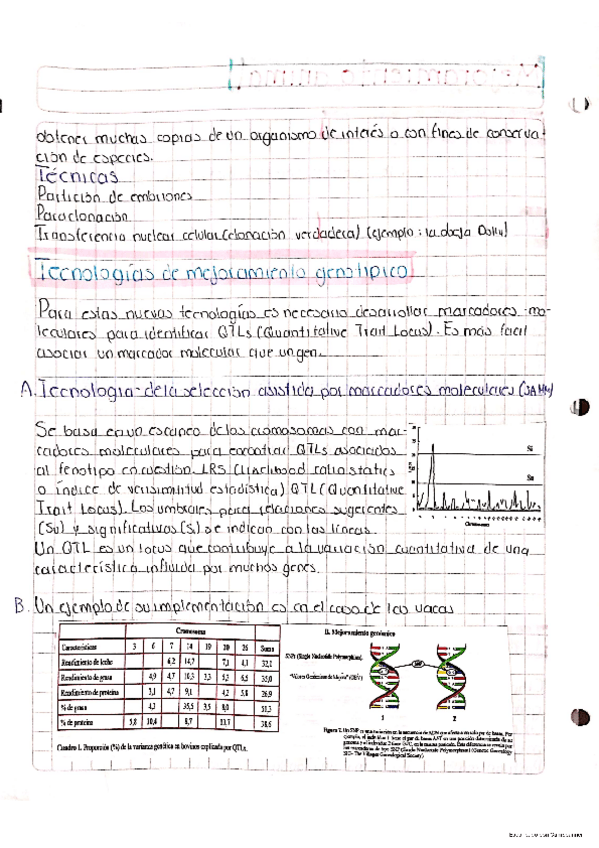 Mejoramiento animal
obtener muchas copias de un organismo de interés o con fines de conserva-
ción de especies.
Técnicas
Partición de embriones
Paraclonación
Transferencia nuclear celular (clonación verdadera) (ejemplo: la obeja Dolly)
Tecnologías de mejoramiento genotípico
Para estas nuevas tecnologías es necesario desarrollar marcadores mo-
leculares para identificar QTLs (Quantitative Trait Locus). Es más facil
asociar un marcador molecular que un gen.
A. Tecnología de la selección asistida por marcadores moleculares (SAMM)
Se basa en un escaneo de los cromosomas con mar-
cadores moleculares para encontrar QTLs asociados
al fenotipo en cuestión. LRS (Likelihood ratio statics
o índice de verisimilitud estadística) QTL (Quantitative
Trait Locus). Los umbrales para relaciones sugerentes
(Su) y significativos (S) se indican con las líneas.
Un QTL es un locus que contribuye a la variación cuantitativa de una
característica influida por muchos genes.
Si
Su
Cromosoma
B. Un ejemplo de su implementación es en el caso de las vacas
Cromosoma
Características 3 6 7 14 19 20 26 Suma
Rendimiento de leche 6,2 14,7 7,1 4,1 32,1
Rendimiento de grasa 4,9 4,7 10,3 3,3 5,3 6,5 35,0
Rendimiento de proteína 3,1 4,7 9,1 4,2 5,8 26,9
% de grasa 4,3 35,5 3,5 8,0 51,3
% de proteína 5,8 10,4 8,7 13,7 38,6
Cuadro 1. Proporción (%) de la varianza genética en bovinos explicada por QTLs.
B. Mejoramiento genómico
SNPs (Single Nucleotide Polymorphism).
"Valores Genómicos de Mejora (GBV)"
SNP
1 2